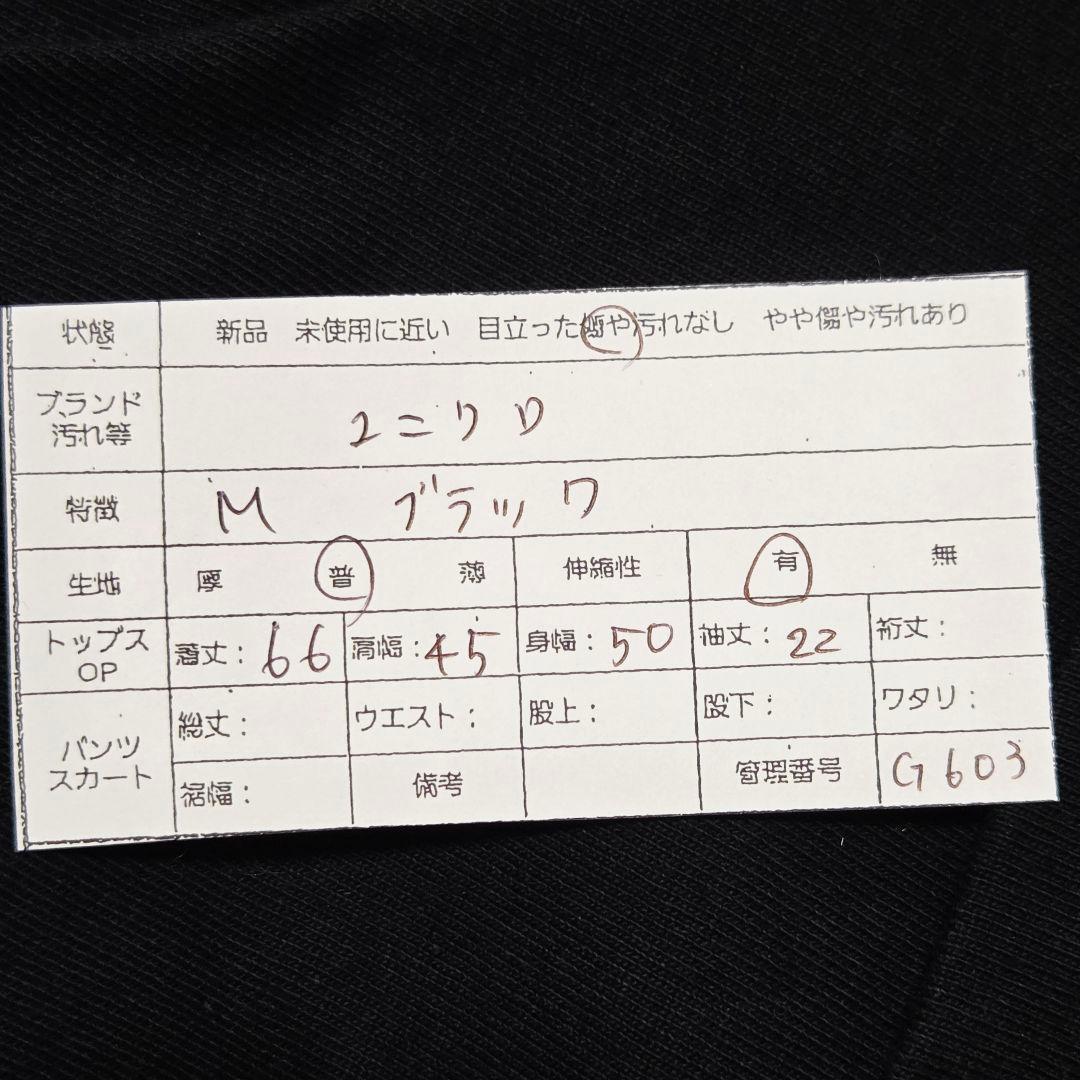 状態 新品 未使用に近い 目立った傷や汚れなし やや傷や汚れあり
ブランド
汚れ等 ユニクロ
特徴 M ブラック
生地 厚 普 薄 伸縮性 有 無
トップス
OP 着丈: 66 肩幅: 45 身幅: 50 袖丈: 22 裄丈:
パンツ
スカート 総丈: ウエスト: 股上: 股下: ワタリ:
裾幅: 備考 管理番号 G603